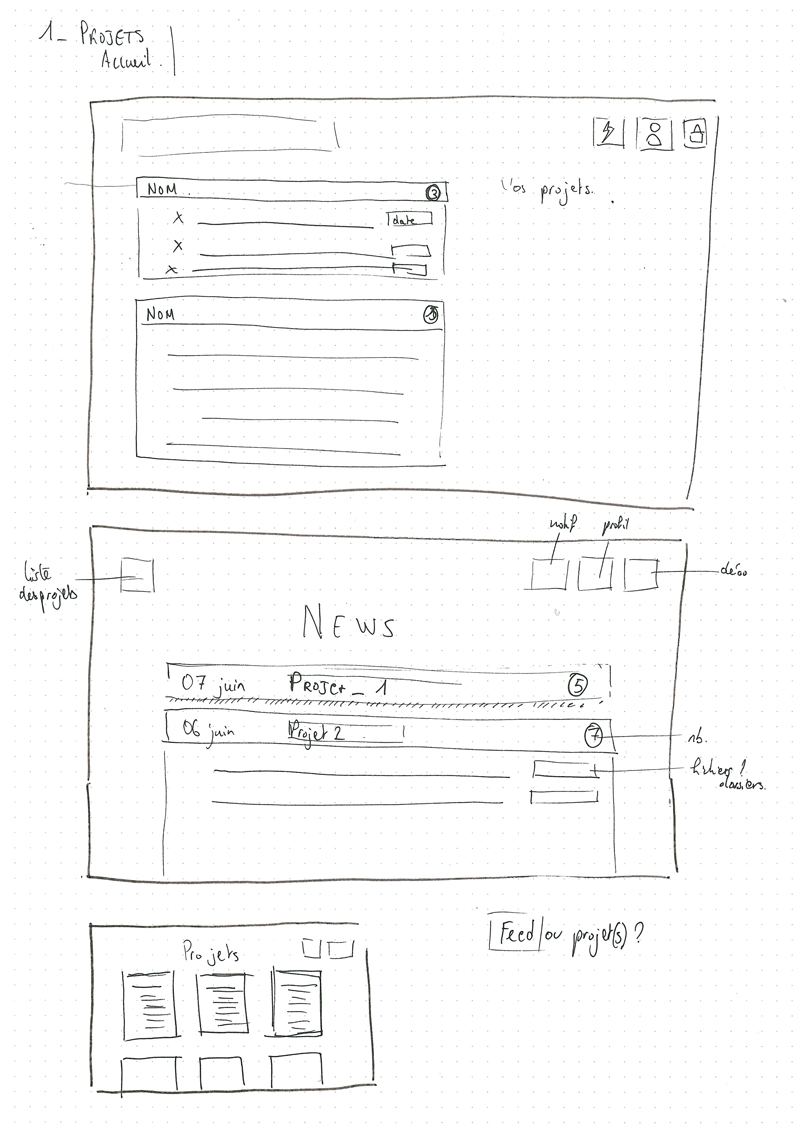 1_ PROJETS
Accueil.
NOM.
3
Vos projets.
X
date
X
X
NOM
notif
profil
Liste
des projets
déco
NEWS
07 juin PROJET_1 5
06 juin Projet 2 7
nb.
fichiers /
dossiers.
Projets
Feed/ou projet(s) ?